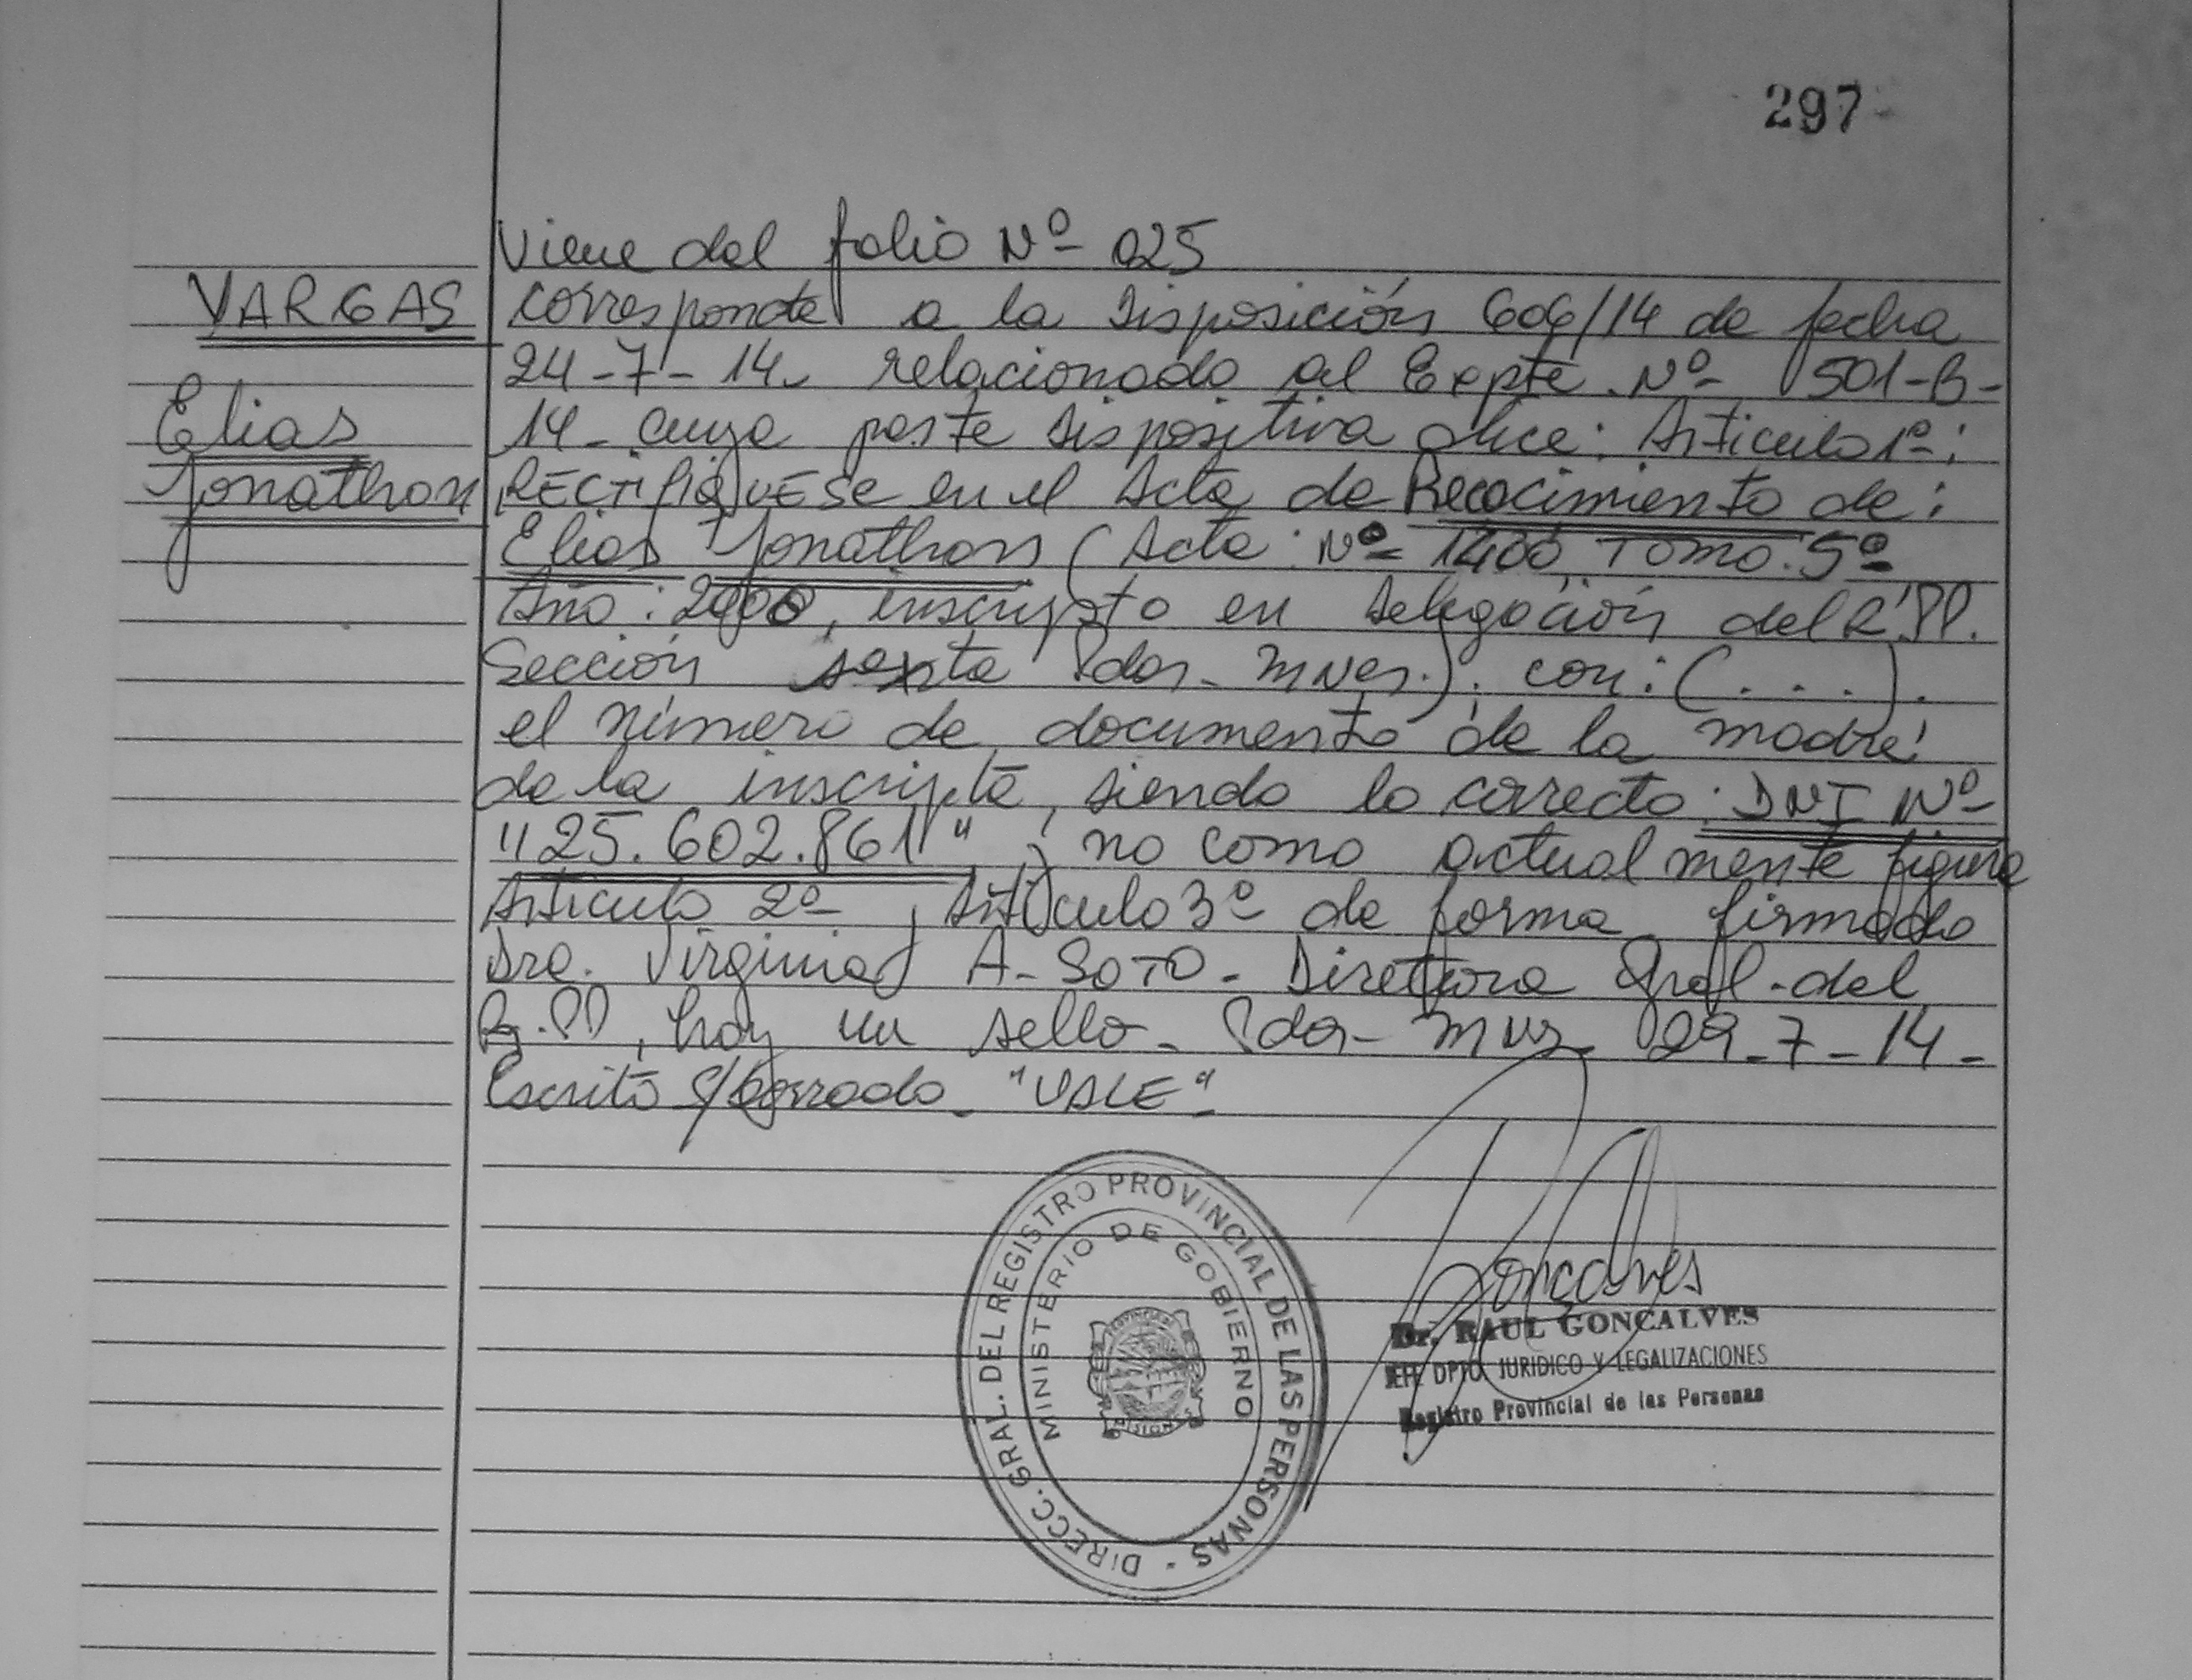 297
VARGAS
Elias
Jonathon
Viene del folio Nº 025
corresponde a la Disposición 606/14 de fecha
24-7-14. relacionado al Expte. Nº 501-B-
14- cuya parte dispositiva dice: Articulo 1º:
RECTIFIQUESE en el Acta de Recocimiento de:
Elias Jonathon (Acta: Nº 1400, Tomo: 5º
Año: 2000, inscripto en Delegación del R.PP.
Sección sexta Pdas-Mnes.). con: (...).
el número de documento de la madre
de la inscripta, siendo lo correcto: DNI Nº
"25.602.861", no como actualmente figura
Articulo 2º, Articulo 3º de forma firmado
Dra. Virginia A- SOTO- Directora Gral.-del
R.PP, hay un sello- Pdas- Mnes 29-7-14-
Escrito s/borrado- "VALE"-
DIRECC. GRAL. DEL REGISTRO PROVINCIAL DE LAS PERSONAS -
MINISTERIO DE GOBIERNO
PROVINCIA DE
MISIONES
Goncalves
Dr. RAUL GONCALVES
JEFE DPTO. JURIDICO Y LEGALIZACIONES
Registro Provincial de las Personas